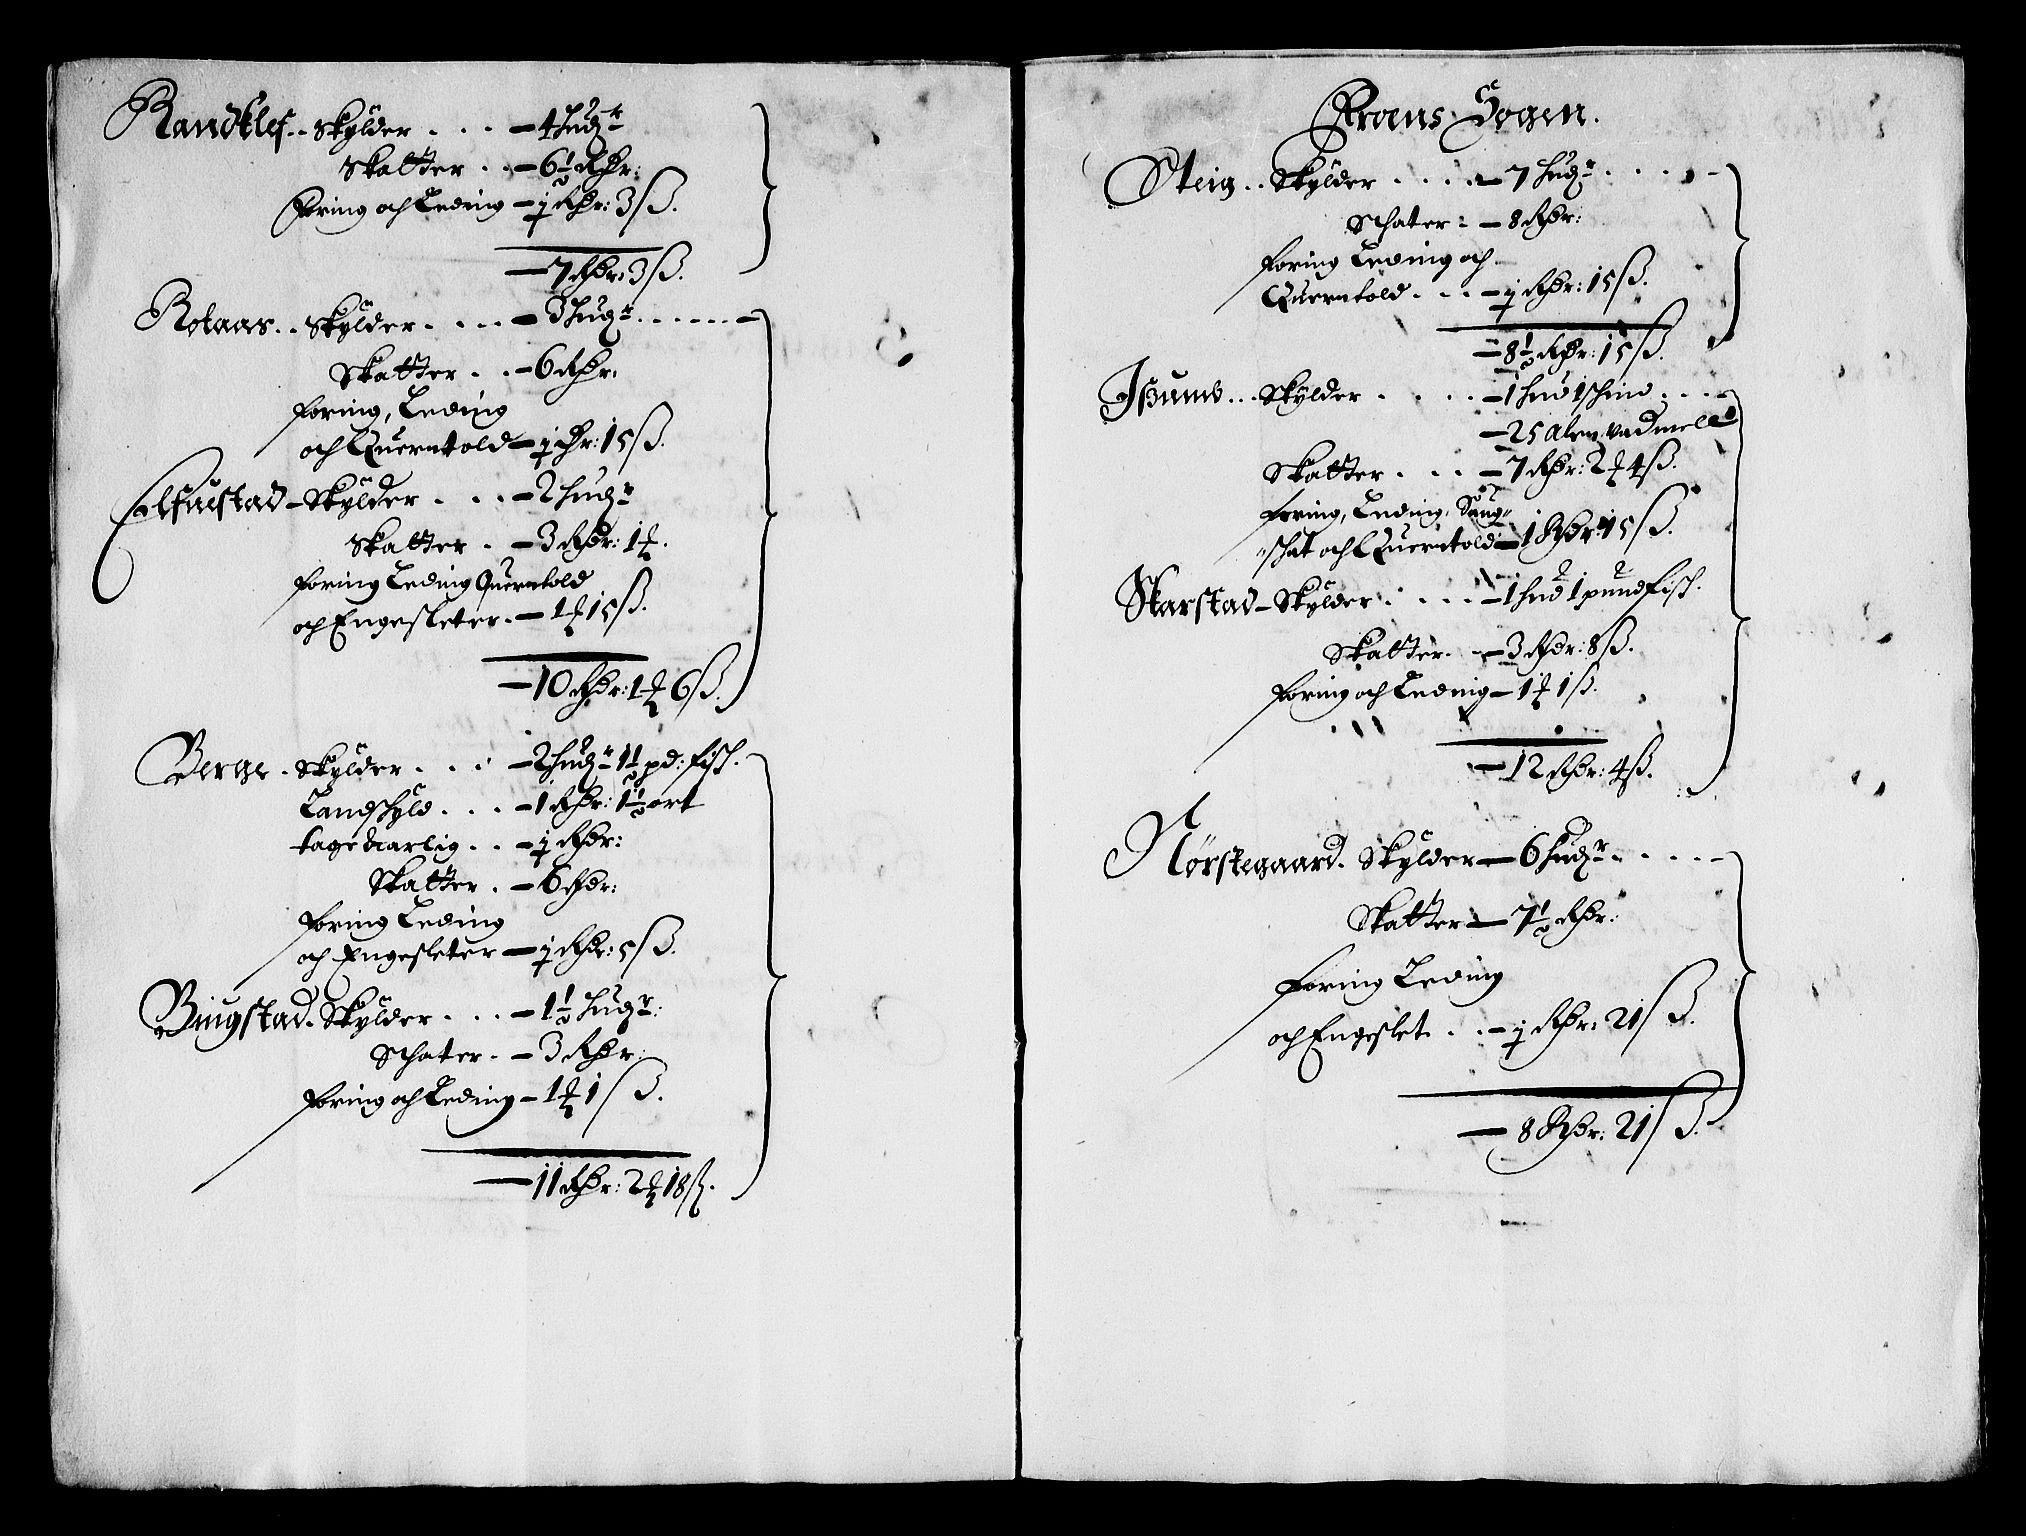 Randklef .. Skylder . . . – 4 hud^r
Skatter . . – 6½ Rdr:
Foring och Leding – ½ Rdr: 3 ß.
– 7 Rdr: 3 ß.
Rolaas .. Skylder . . . . – 3 hud^r . . . . . . –
Skatter . . – 6 Rdr.
foring, Leding
och Querntold – ½ dr: 15 ß.
Elfuestad – Skylder . . . – 2 hud^r
Skatter . – 3 Rdr: 1 ₰.
foring Leding Querntold
och Engesleter . – 1 ₰ 15 ß.
– 10 Rdr: 1 ₰ 6 ß.
Berge . Skylder . . . – 2 hud^r 1½ pd: fisk.
Landskyld . . . – 1 Rdr: 1½ ort
tage aarlig . . – ½ Rdr:
Skatter . – 6 Rdr:
foring Leding
och Engesleter – ½ Rdr: 5 ß.
Bingstad . Skylder . . . – 1½ hud^r:
Schater . – 3 Rdr:
foring och Leding – 1 ₰ 1 ß.
– 11 Rdr: 2 ₰ 18 ß.
Froens Sogen.
Steig .. Skylder . . . . – 7 hud^r . . . . . –
Schater : – 8 Rdr:
foring Leding och
Querntold . . . – ½ Rdr: 15 ß.
– 8½ Rdr: 15 ß.
Jßumb ... Skylder . . . . – 1 hud 1 schind . . . –
– 25 alen vadmell
Skatter . . . – 7 Rdr: 2 ₰ 4 ß.
foring, Leding, Saug-
schat och Querntold – 1 Rdr: 15 ß.
Skarstad – Skylder . . . . – 1 hud 1 pund fisk.
Skatter . . – 3 Rdr: 8 ß.
foring och Leding – 1 ₰ 1 ß.
– 12 Rdr: 4 ß.
Nörstegaard . Skylder – 6 hud^r . . . . –
Skatter – 7½ Rdr:
foring Leding
och Engeslet . . – ½ Rdr: 21 ß.
– 8 Rdr: 21 ß.